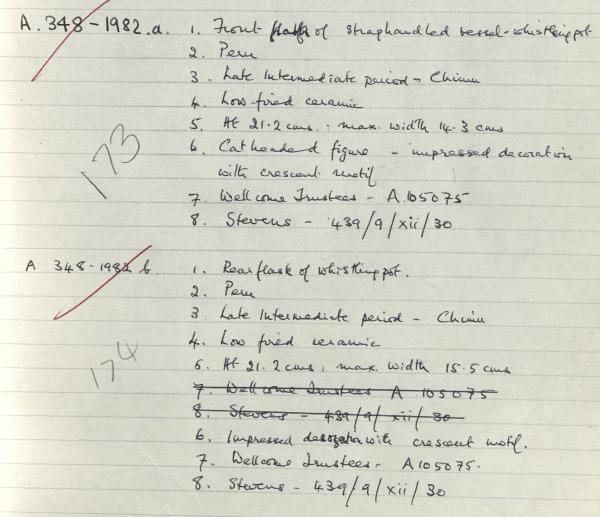 A. 348-1982.a. 1. Front flask of straphandled vessel-whistling pot
2. Peru
3. Late Intermediate period - Chimu
4. Low-fired ceramic
5. Ht 21.2 cms. : max. width 14.3 cms
173
6. Cat headed figure - impressed decoration
with crescent motif
7. Wellcome Trustees - A.105075
8. Stevens - 439/9/xii/30
A 348-1982 b. 1. Rear flask of whistling pot.
2. Peru
3. Late Intermediate period - Chimu
4. Low fired ceramic
174
5. Ht 21.2 cms, max. width 15.5 cms
7. Wellcome Trustees A 105075
8. Stevens - 439/9/xii/30
6. Impressed decoration with crescent motif.
7. Wellcome Trustees - A105075.
8. Stevens - 439/9/xii/30